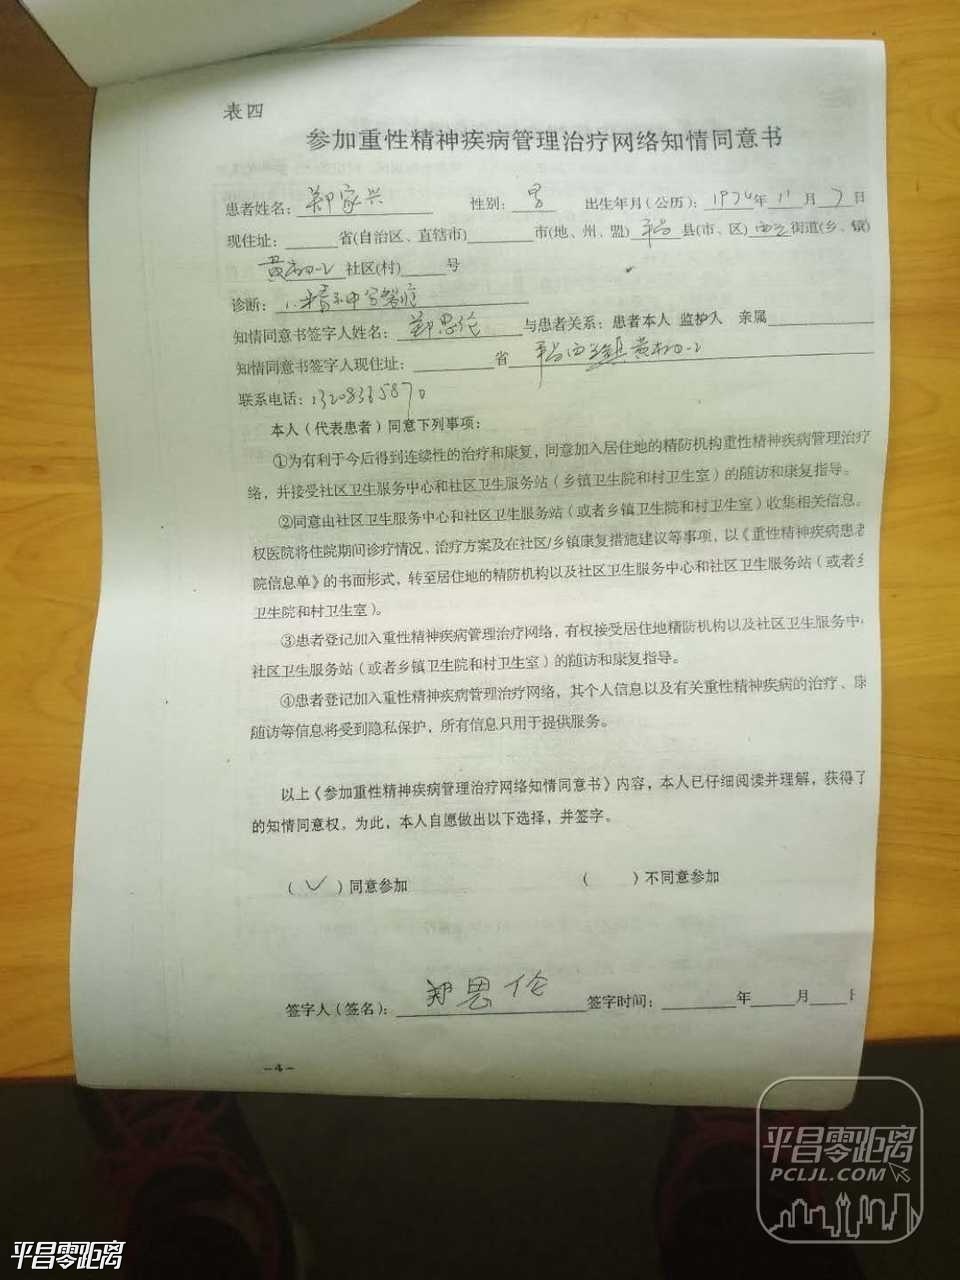 表四
参加重性精神疾病管理治疗网络知情同意书
患者姓名：郑家兴 性别：男 出生年月（公历）：1974年11月7日
现住址：省(自治区、直辖市)市(地、州、盟)平昌县(市、区)西兴街道(乡、镇)
黄 社区(村) 号
诊断：
知情同意书签字人姓名：郑思伦 与患者关系：患者本人 监护人 亲属
知情同意书签字人现住址：省 平昌西兴镇黄
联系电话：
本人（代表患者）同意下列事项：
①为有利于今后得到连续性的治疗和康复，同意加入居住地的精防机构重性精神疾病管理治疗
络，并接受社区卫生服务中心和社区卫生服务站（乡镇卫生院和村卫生室）的随访和康复指导。
②同意由社区卫生服务中心和社区卫生服务站（或者乡镇卫生院和村卫生室）收集相关信息。
权医院将住院期间诊疗情况、治疗方案及在社区/乡镇康复措施建议等事项，以《重性精神疾病患者
院信息单》的书面形式，转至居住地的精防机构以及社区卫生服务中心和社区卫生服务站（或者乡
卫生院和村卫生室）。
③患者登记加入重性精神疾病管理治疗网络，有权接受居住地精防机构以及社区卫生服务中
社区卫生服务站（或者乡镇卫生院和村卫生室）的随访和康复指导。
④患者登记加入重性精神疾病管理治疗网络，其个人信息以及有关重性精神疾病的治疗、康
随访等信息将受到隐私保护，所有信息只用于提供服务。
以上《参加重性精神疾病管理治疗网络知情同意书》内容，本人已仔细阅读并理解，获得了
的知情同意权。为此，本人自愿做出以下选择，并签字。
（✓）同意参加 （ ）不同意参加
签字人（签名）：郑思伦 签字时间： 年 月
-4-
平昌零距离
PCLJL.COM
平昌零距离